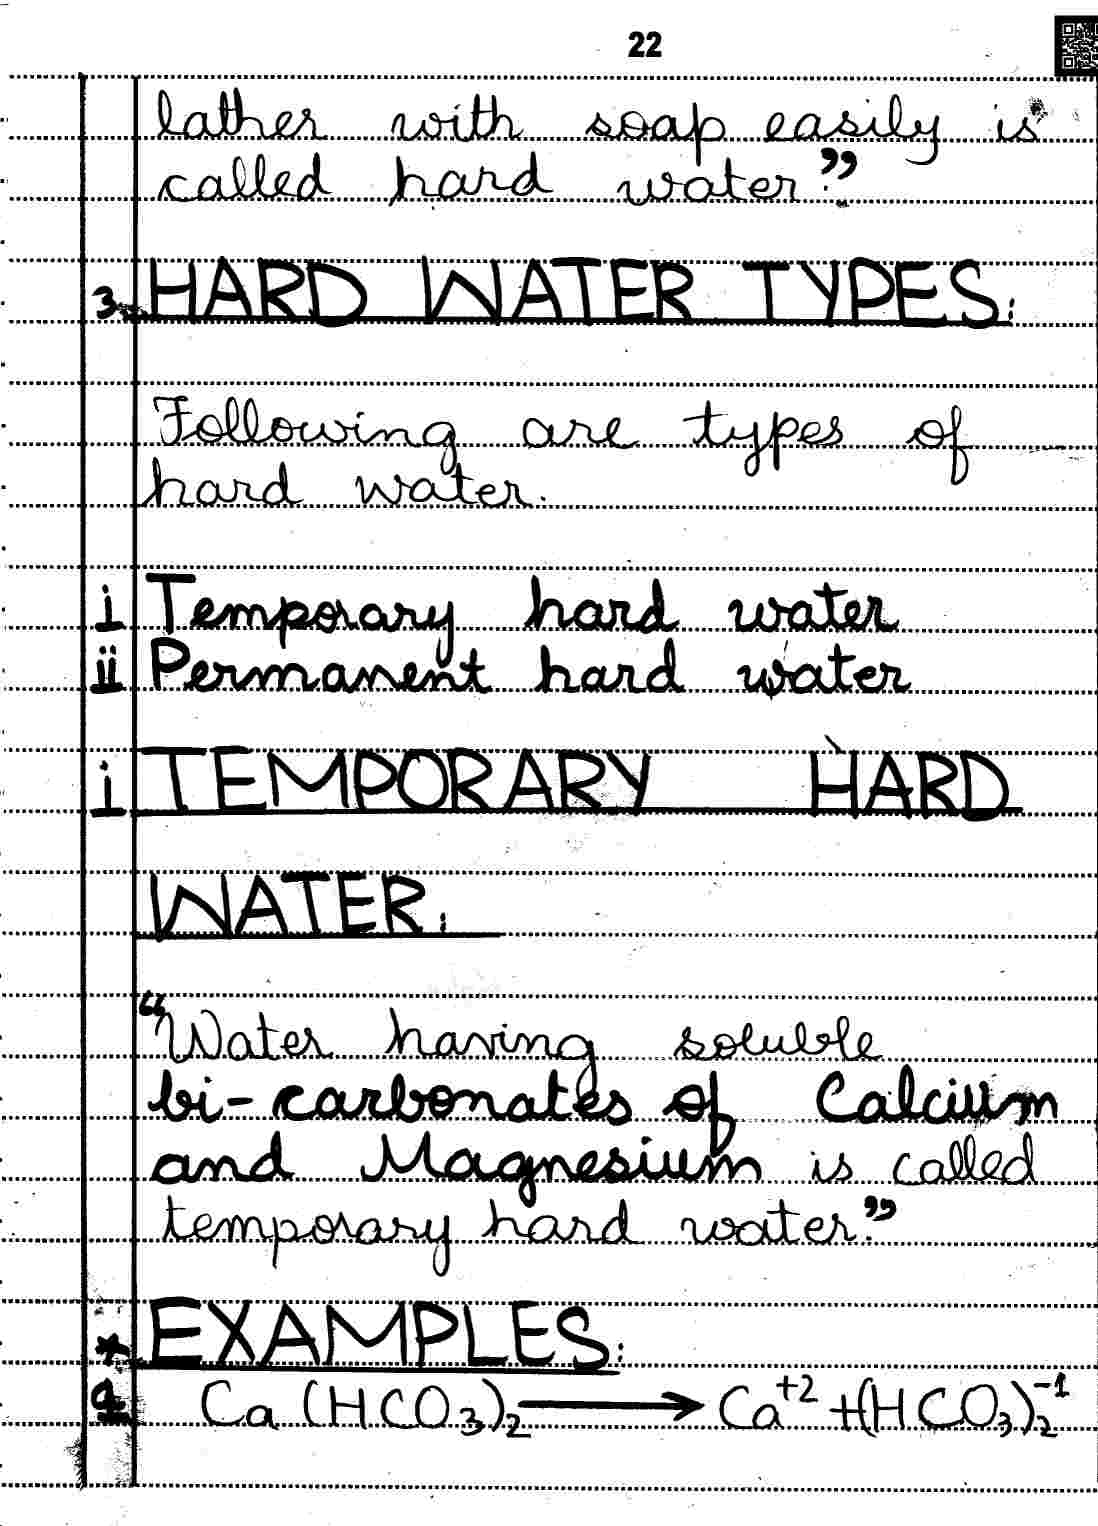 22
lather with soap easily is
called hard water."
3. HARD WATER TYPES:
Following are types of
hard water.
i Temporary hard water
ii Permanent hard water
i TEMPORARY HARD
WATER:
"Water having soluble
bi-carbonates of Calcium
and Magnesium is called
temporary hard water."
* EXAMPLES:
Ca(HCO₃)₂ → Ca⁺² + (HCO₃)₂⁻¹